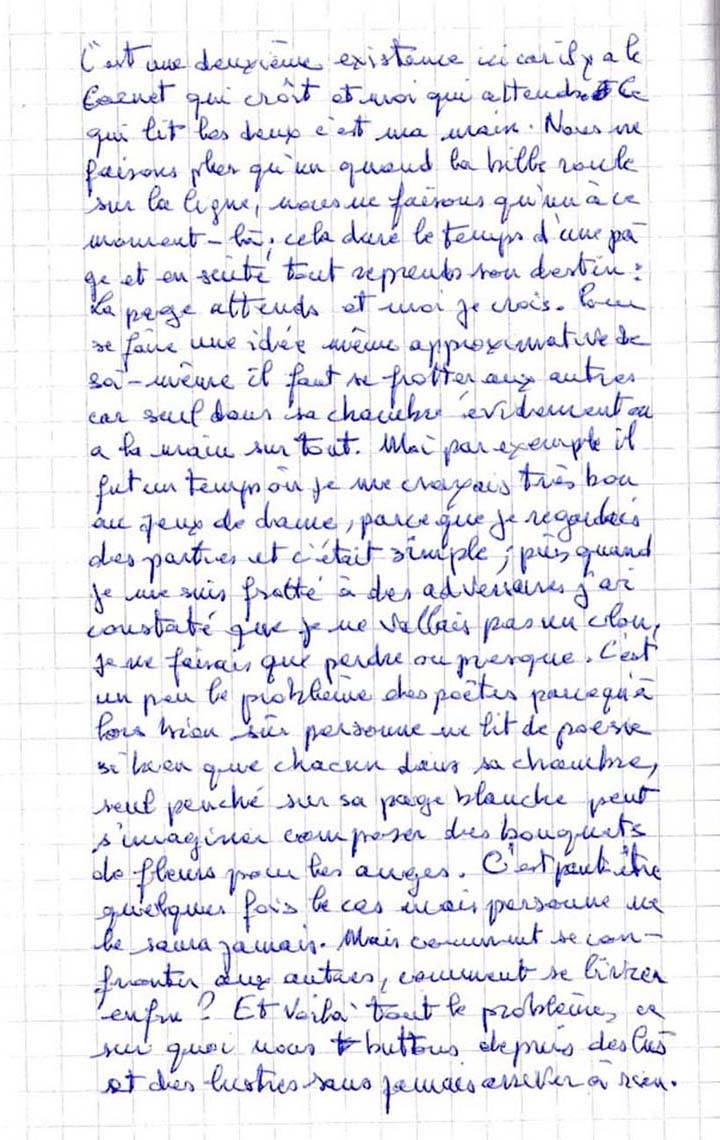 C'est une deuxième existence ici car il y a le
Carnet qui croît et moi qui attends. Ce
qui lit les deux c'est ma main. Nous ne
faisons plus qu'un quand la bille roule
sur la ligne, nous ne faisons qu'un à ce
moment-là; cela dure le temps d'une pa
ge et en suite tout reprends son destin:
La page attends et moi je crois. Pour
se faire une idée même approximative de
soi-même il faut se frotter aux autres
car seul dans sa chambre évidement on
a la main sur tout. Moi par exemple il
fut un temps où je me croyais très bon
au jeux de dame, parce que je regardais
des parties et c'était simple; puis quand
je me suis frotté à des adversaires j'ai
constaté que je ne vallais pas un clou,
je ne faisais que perdre ou presque. C'est
un peu le problème des poètes parcequ'à
lors bien sûr personne ne lit de poésie
si bien que chacun dans sa chambre,
seul penché sur sa page blanche peut
s'imaginer composer des bouquets
de fleurs pour les anges. C'est peut être
quelques fois le cas mais personne ne
le saura jamais. Mais comment se con-
fronter aux autres, comment se livrer
enfin? Et voilà tout le problème, ce
sur quoi nous buttons depuis des
et des lustres sans jamais arriver à rien.